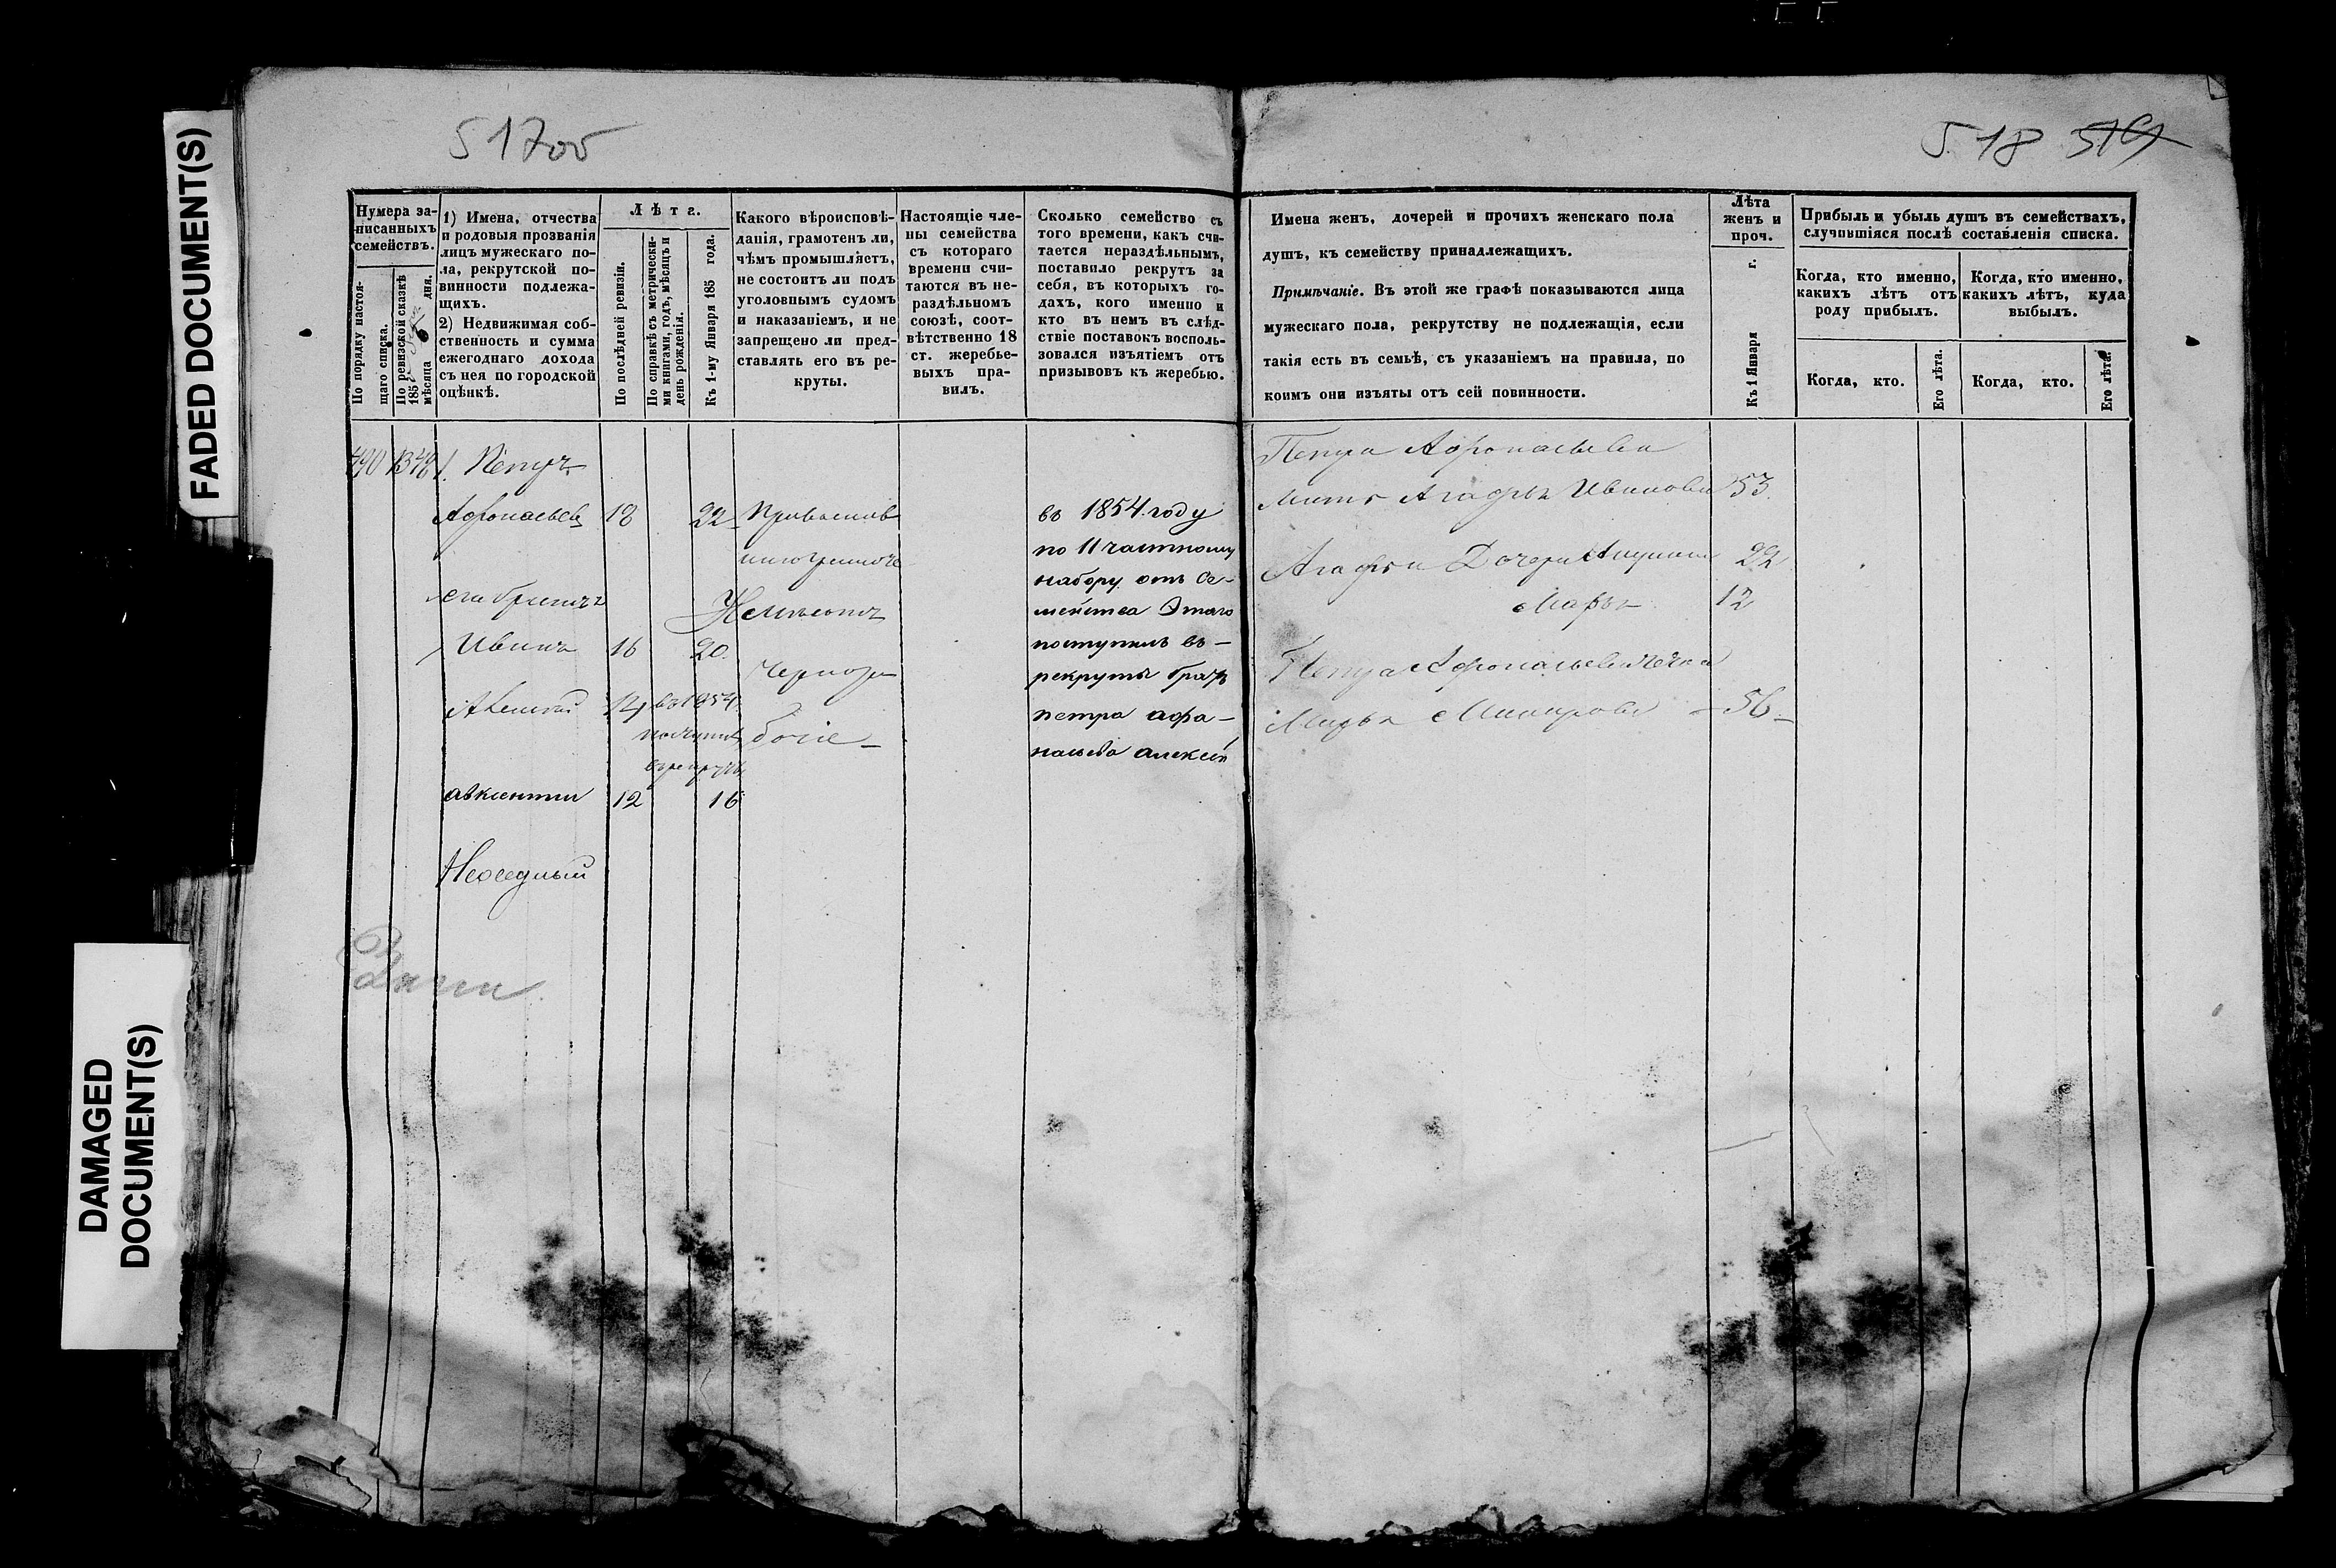 517об
518 519
FADED DOCUMENT(S)
DAMAGED
DOCUMENT(S)
Нумера за-
писанныхъ
семействъ.
По порядку настоя-
щаго списка.
По ревизской сказкѣ
185
мѣсяца 6 дня.
1) Имена, отчества
и родовыя прозванія
лицъ мужескаго по-
ла, рекрутской по-
винности подлежа-
щихъ.
2) Недвижимая соб-
ственность и сумма
ежегоднаго дохода
съ нея по городской
оцѣнкѣ.
Лѣтъ.
По послѣдней ревизіи.
По справкѣ съ метрически-
ми книгами, годъ, мѣсяцъ и
день рожденія.
Къ 1-му Января 185 года.
Какого вѣроисповѣ-
данія, грамотенъ ли,
чѣмъ промышляетъ,
не состоитъ ли подъ
уголовнымъ судомъ
и наказаніемъ, и не
запрещено ли пред-
ставлять его въ ре-
круты.
Настоящіе чле-
ны семейства
съ котораго
времени счи-
таются въ не-
раздѣльномъ
союзѣ, соот-
вѣтственно 18
ст. жеребье-
выхъ пра-
вилъ.
Сколько семейство съ
того времени, какъ счи-
тается нераздѣльнымъ,
поставило рекрутъ за
себя, въ которыхъ го-
дахъ, кого именно и
кто въ немъ въ слѣд-
ствіе поставокъ восполь-
зовался изъятіемъ отъ
призывовъ къ жеребью.
Имена женъ, дочерей и прочихъ женскаго пола
душъ, къ семейству принадлежащихъ.
Примѣчаніе. Въ этой же графѣ показываются лица
мужескаго пола, рекрутству не подлежащія, если
такія есть въ семьѣ, съ указаніемъ на правила, по
коимъ они изъяты отъ сей повинности.
Лѣта
женъ и
проч.
Къ 1 Января г.
Прибыль и убыль душъ въ семействахъ,
случившіяся послѣ составленія списка.
Когда, кто именно,
какихъ лѣтъ отъ
роду прибылъ.
Когда, кто именно,
какихъ лѣтъ, куда
выбылъ.
Когда, кто.
Его лѣта.
Когда, кто.
Его лѣта.
490 1348 1. Петръ
Афонасьевъ 18 22 Православ
его братья
Иванъ 16 20
Чернора
Алексей 14 въ 1854
поступилъ бочіе
въ рекруты
авксентии 12 16
въ 1854 году
по 11 частному
набору отъ се-
мейства этаго
поступилъ въ
рекруты братъ
петра афа-
насьева алексѣй
Петра Афонасьева
мать Агафья Иванова 53
Агафьи Дочери 22
Марья 12
Петра Афонасьева
Марья 56